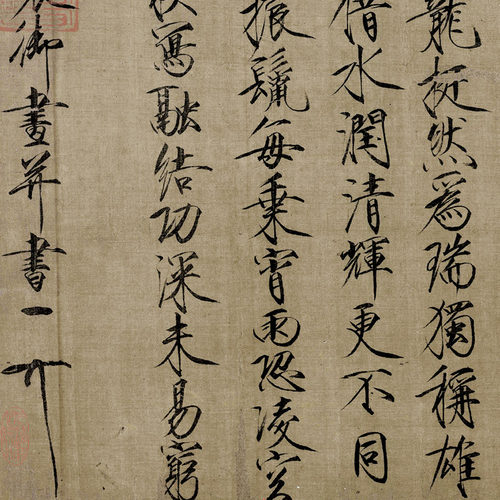 龍挺然爲瑞獨稱雄
借水潤清輝更不同
振鬣每乘宵雨恐凌空
寫融結功深未易窮
御畫并書